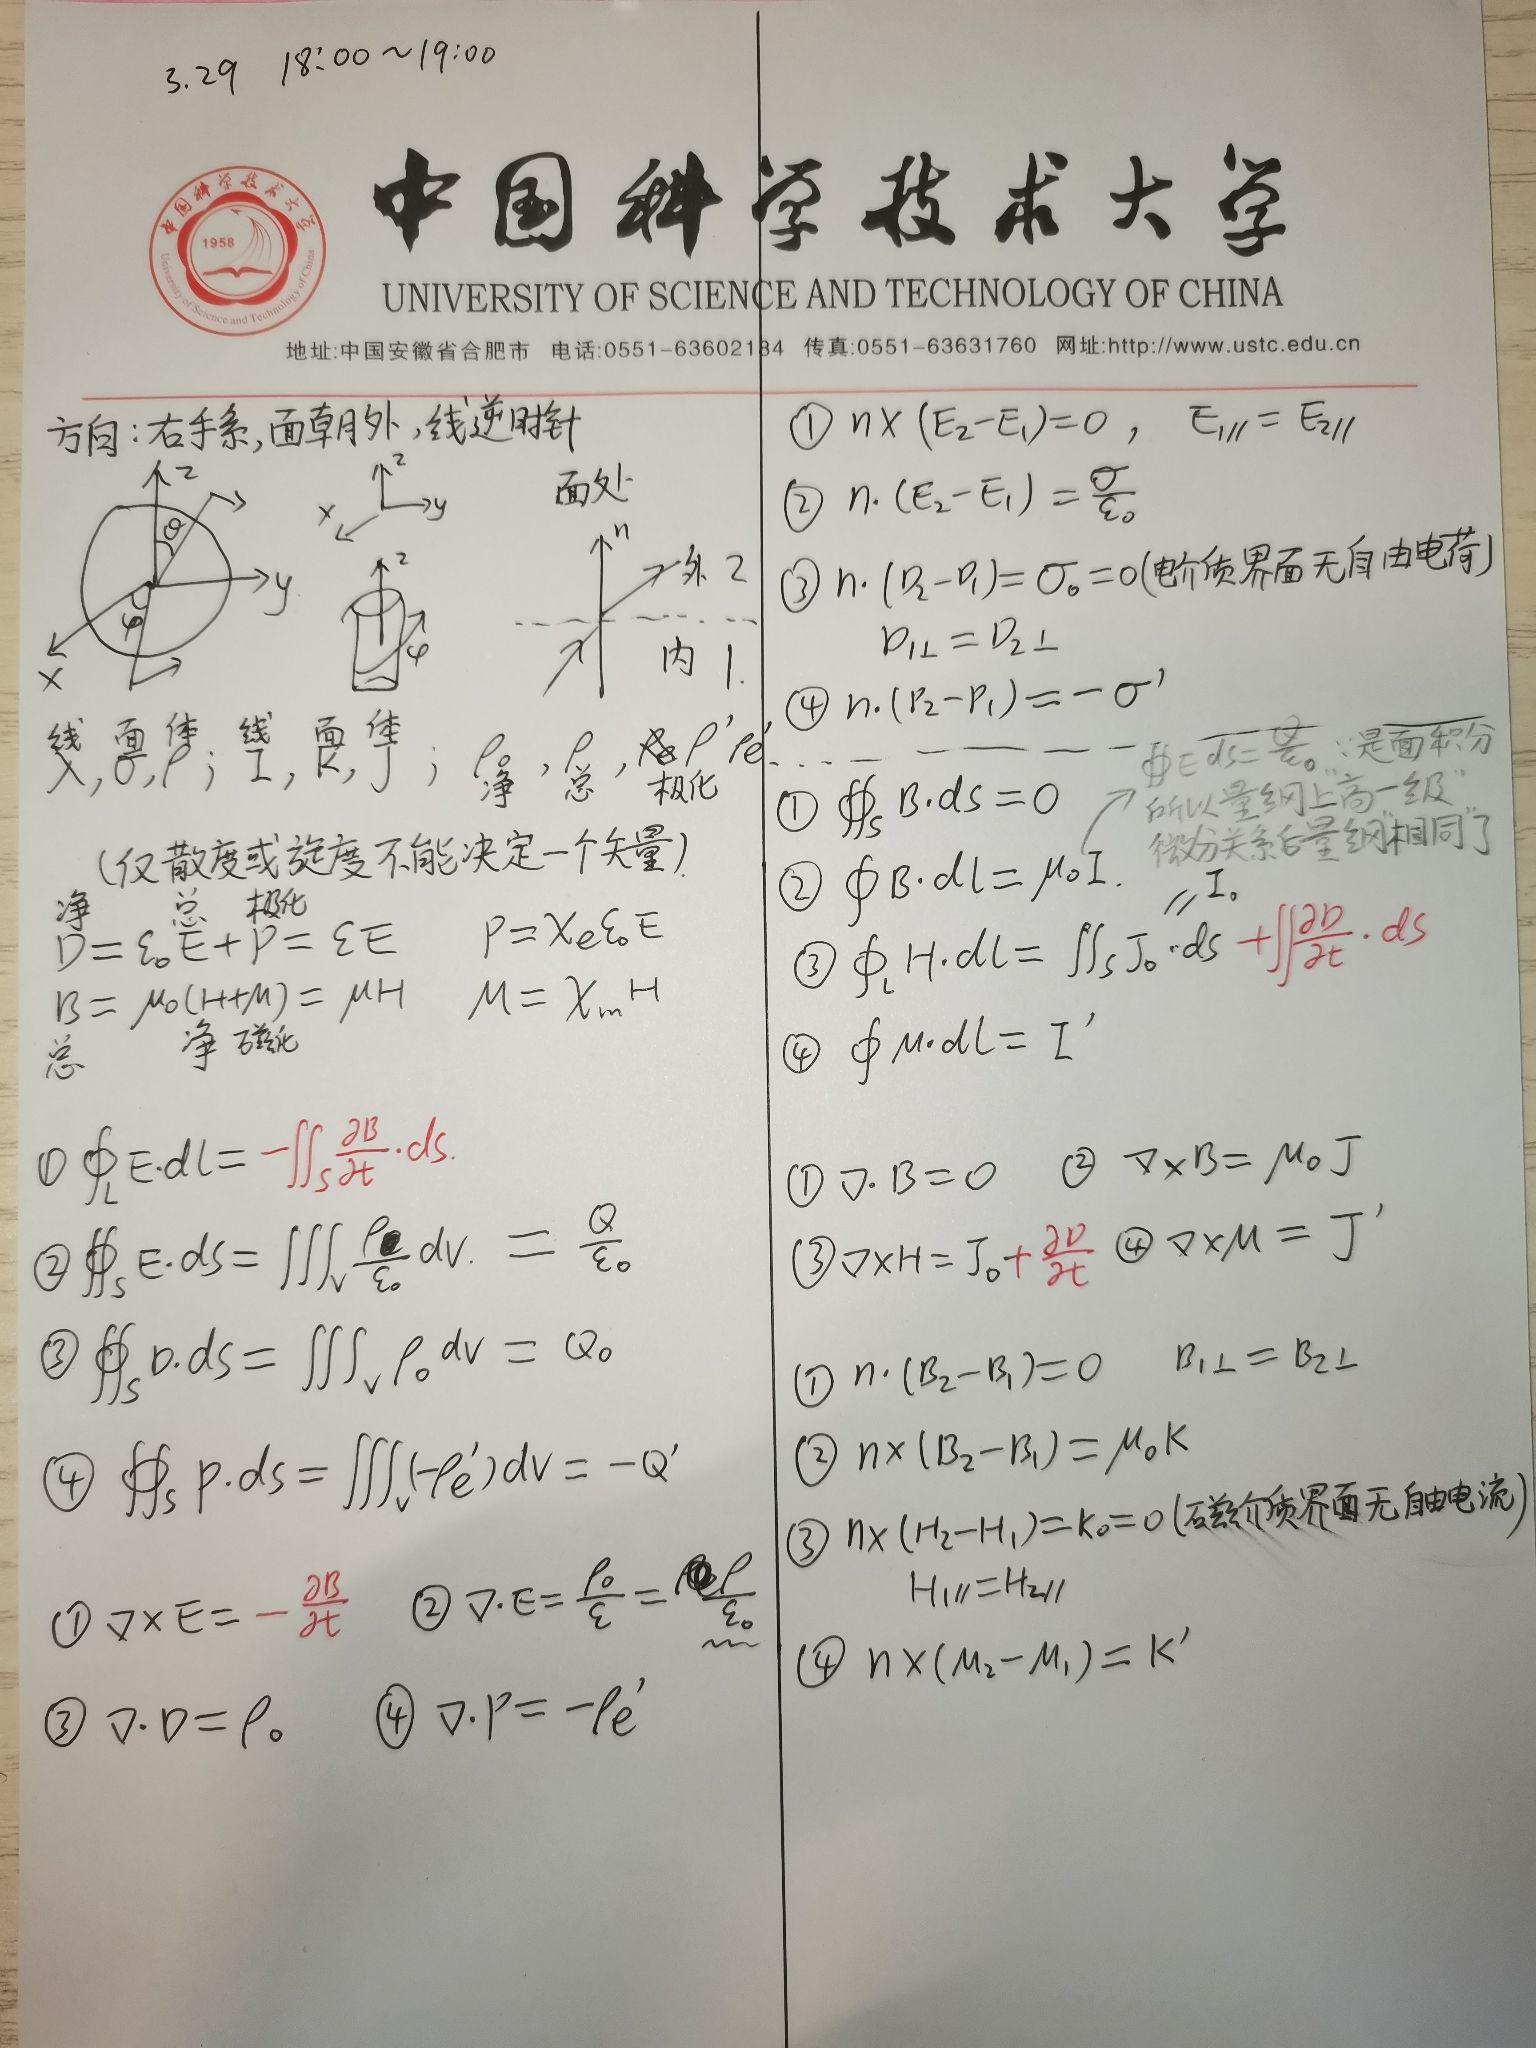 3.29 18:00~19:00
中国科学技术大学
1958
University of Science and Technology of China
UNIVERSITY OF SCIENCE AND TECHNOLOGY OF CHINA
地址:中国安徽省合肥市 电话:0551-63602184 传真:0551-63631760 网址:http://www.ustc.edu.cn
方向:右手系,面朝外,线逆时针
z θ y φ x
z y x
z φ
面处
n 外 2
内 1.
线 面 体 线 面 体
λ, σ, ρ; I, K, J; ρ₀, ρ, ρ' ρe'
净 总 极化
(仅散度或旋度不能决定一个矢量)
净 总 极化
D = ε₀E + P = εE P = χeε₀E
B = μ₀(H+M) = μH M = χmH
总 净 磁化
① ∮_L E·dl = -∬_S ∂B/∂t·ds.
② ∯_S E·ds = ∭_V ρ/ε₀ dv. = Q/ε₀
③ ∯_S D·ds = ∭_V ρ₀ dv = Q₀
④ ∯_S P·ds = ∭_V (-ρe')dv = -Q'
① ∇×E = -∂B/∂t ② ∇·E = ρ₀/ε = ρ/ε₀
③ ∇·D = ρ₀ ④ ∇·P = -ρe'
① n×(E₂-E₁)=0, E₁// = E₂//
② n·(E₂-E₁) = σ/ε₀
③ n·(D₂-D₁) = σ₀ = 0(电介质界面无自由电荷)
D₁⊥ = D₂⊥
④ n·(P₂-P₁) = -σ'
∯E ds = Q/ε₀ ∵是面积分
所以量纲上"高一级"
微分关系后量纲"相同"了
① ∯_S B·ds = 0
② ∮B·dl = μ₀I.
// I₀
③ ∮_L H·dl = ∬_S J₀·ds + ∬∂D/∂t·ds
④ ∮M·dl = I'
① ∇·B = 0 ② ∇×B = μ₀J
③ ∇×H = J₀ + ∂D/∂t ④ ∇×M = J'
① n·(B₂-B₁)=0 B₁⊥ = B₂⊥
② n×(B₂-B₁) = μ₀K
③ n×(H₂-H₁) = K₀ = 0(磁介质界面无自由电流)
H₁// = H₂//
④ n×(M₂-M₁) = K'